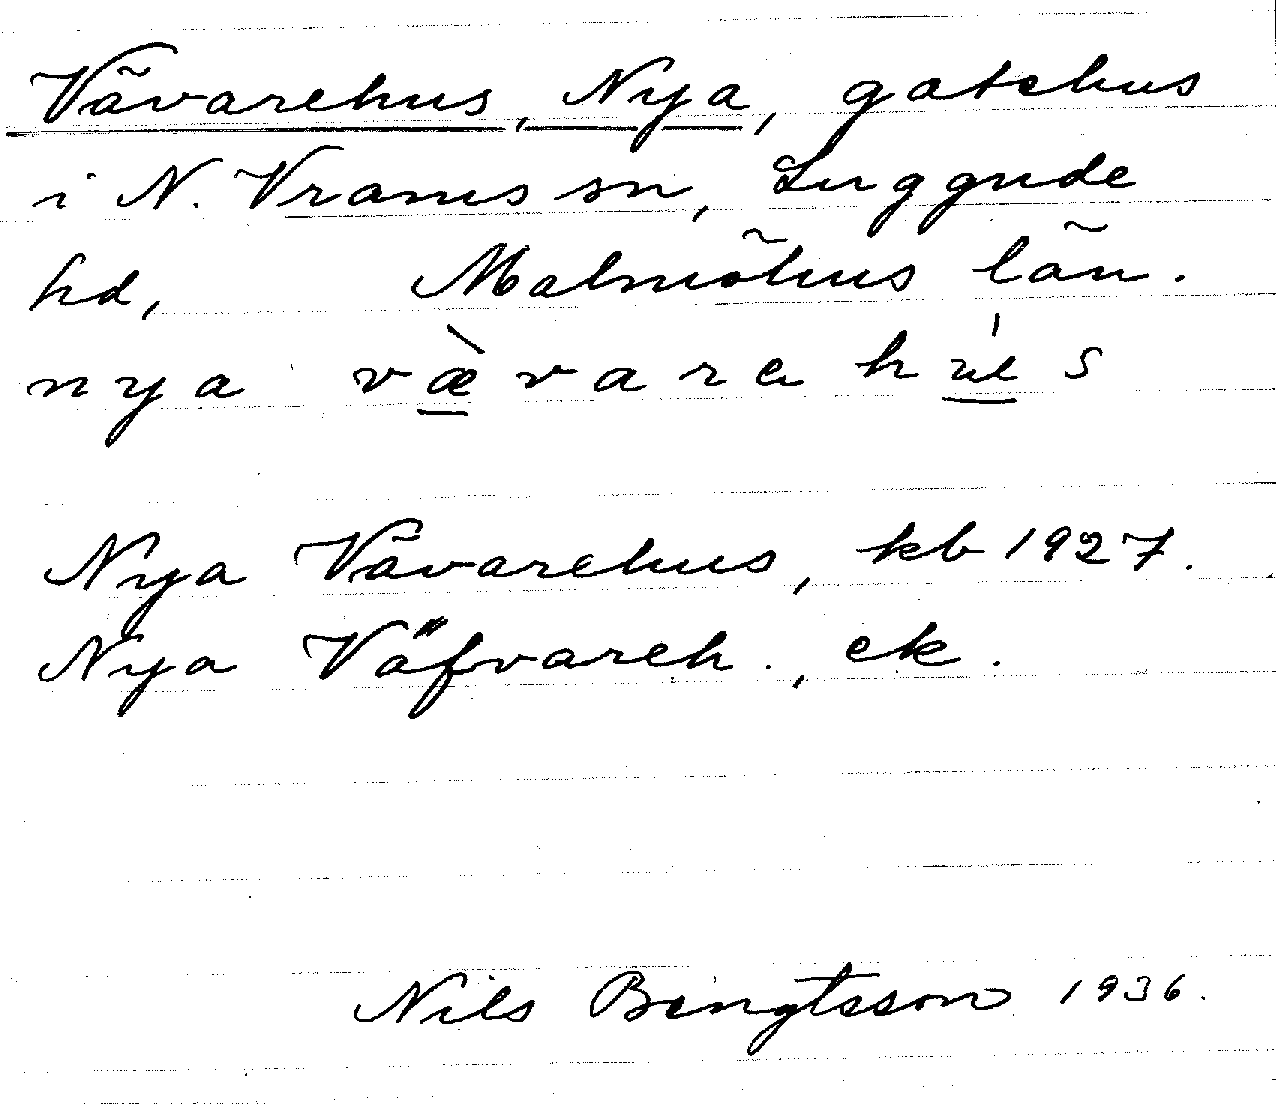 Vävarehus, Nya, gatehus
i N. Vrams sn, Luggude
hd, Malmöhus län.
nya vævarahús
Nya Vävarehus, kb 1927.
Nya Väfvareh., ek.
Nils Bengtsson 1936.